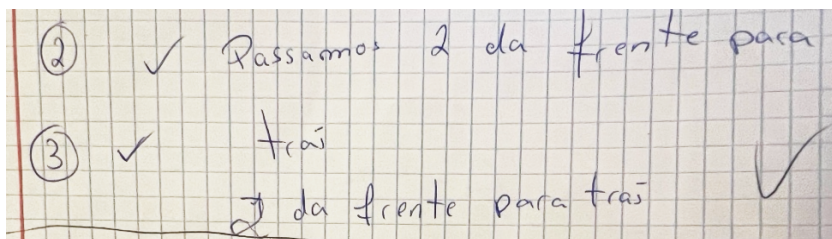 ② ✓ Passamos 2 da frente para
③ ✓ tras
2 da frente para tras ✓